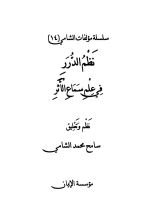 سلسلة مؤلفات الشامي (١٤)
نَظْمُ الدُّرَر
فِي عِلْمِ سَمَاعِ الأَثَرِ
نظم وتعليق
سامح محمد الشامي
مؤسسة الإيمان